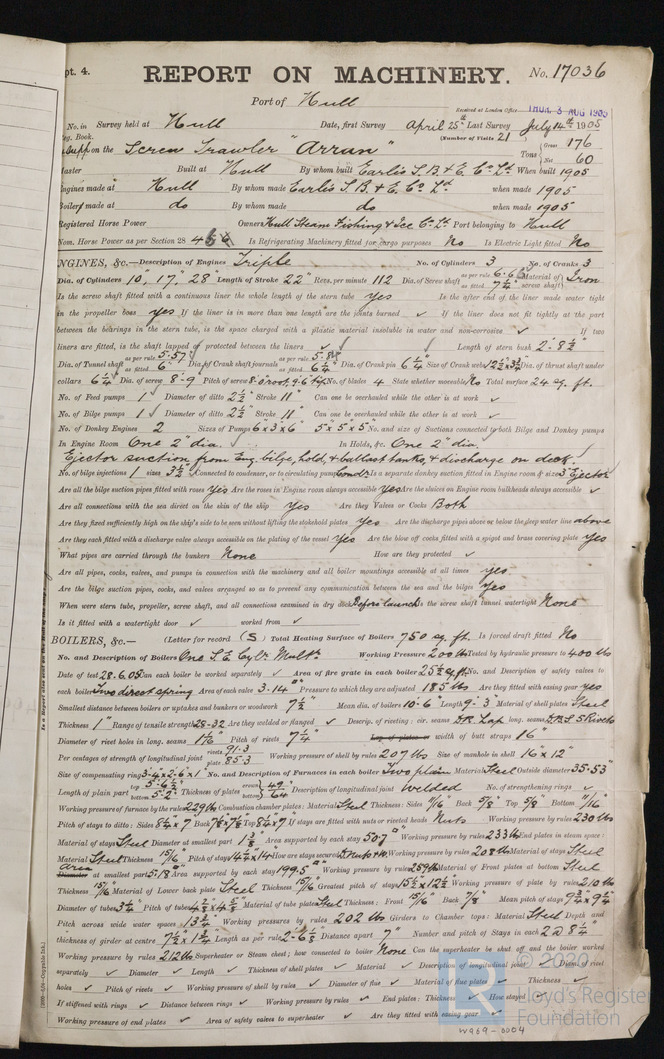 pt. 4.
REPORT ON MACHINERY.
No. 17036
Port of Hull
Received at London Office THUR 3 AUG 1905
No. in Survey held at Hull Date, first Survey April 25th Last Survey July 14th 1905
Reg. Book. (Number of Visits 21
on the Screw Trawler "Arran" Tons { Gross 176 Net 60
Master Built at Hull By whom built Earle's S.B. & E. Co. Ld. When built 1905
Engines made at Hull By whom made Earle's S.B. & E. Co. Ld. when made 1905
Boilers made at do By whom made do when made 1905
Registered Horse Power Owners Hull Steam Fishing & Ice Co. Ld. Port belonging to Hull
Nom. Horse Power as per Section 28 Is Refrigerating Machinery fitted for cargo purposes No Is Electric Light fitted No
ENGINES, &c.— Description of Engines Triple No. of Cylinders 3 No. of Cranks 3
Dia. of Cylinders 10", 17", 28" Length of Stroke 22" Revs. per minute 112 Dia. of Screw shaft as per rule as fitted 7¼" Material of screw shaft Iron
Is the screw shaft fitted with a continuous liner the whole length of the stern tube yes Is the after end of the liner made water tight
in the propeller boss yes If the liner is in more than one length are the joints burned ✓ If the liner does not fit tightly at the part
between the bearings in the stern tube, is the space charged with a plastic material insoluble in water and non-corrosive ✓ If two
liners are fitted, is the shaft lapped or protected between the liners ✓ Length of stern bush 2'-8½"
Dia. of Tunnel shaft as per rule 5.57 as fitted 6" Dia. of Crank shaft journals as per rule as fitted 6¼" Dia. of Crank pin 6¼" Size of Crank webs Dia. of thrust shaft under
collars 6¼" Dia. of screw 8'-9 Pitch of screw No. of blades 4 State whether moveable No Total surface 24 sq. ft.
No. of Feed pumps 1 Diameter of ditto 2½" Stroke 11" Can one be overhauled while the other is at work ✓
No. of Bilge pumps 1 Diameter of ditto 2½" Stroke 11" Can one be overhauled while the other is at work ✓
No. of Donkey Engines 2 Sizes of Pumps 6 x 3 x 6" 5" x 5" x 5" No. and size of Suctions connected to both Bilge and Donkey pumps
In Engine Room One 2" dia. In Holds, &c. One 2" dia.
Ejector suction from Eng. bilge, hold, & ballast tanks, & discharge on deck.
No. of bilge injections 1 sizes 3½" Connected to condenser, or to circulating pump Condr. Is a separate donkey suction fitted in Engine room & size 3" Ejector
Are all the bilge suction pipes fitted with roses yes Are the roses in Engine room always accessible yes Are the sluices on Engine room bulkheads always accessible ✓
Are all connections with the sea direct on the skin of the ship yes Are they Valves or Cocks Both
Are they fixed sufficiently high on the ship's side to be seen without lifting the stokehold plates yes Are the discharge pipes above or below the deep water line above
Are they each fitted with a discharge valve always accessible on the plating of the vessel yes Are the blow off cocks fitted with a spigot and brass covering plate yes
What pipes are carried through the bunkers None How are they protected ✓
Are all pipes, cocks, valves, and pumps in connection with the machinery and all boiler mountings accessible at all times yes
Are the bilge suction pipes, cocks, and valves arranged so as to prevent any communication between the sea and the bilges yes
When were stern tube, propeller, screw shaft, and all connections examined in dry dock Before launch Is the screw shaft tunnel watertight None
Is it fitted with a watertight door ✓ worked from ✓
BOILERS, &c.— (Letter for record (S) Total Heating Surface of Boilers 750 sq. ft. Is forced draft fitted No
No. and Description of Boilers One S.E. Cylr. Mult. Working Pressure 200 lbs Tested by hydraulic pressure to 400 lbs
Date of test 28.6.05 Can each boiler be worked separately ✓ Area of fire grate in each boiler 25½ sq. ft. No. and Description of safety valves to
each boiler Two direct spring Area of each valve 3.14" Pressure to which they are adjusted 185 lbs Are they fitted with easing gear yes
Smallest distance between boilers or uptakes and bunkers or woodwork 7½" Mean dia. of boilers 10'-6" Length 9'-3 Material of shell plates Steel
Thickness 1" Range of tensile strength 28-32 Are they welded or flanged ✓ Descrip. of riveting: cir. seams DR Lap long. seams D.B.S. 5 Rivets
Diameter of rivet holes in long. seams 1 1/16" Pitch of rivets 7¼" Lap of plates or width of butt straps 16"
Per centages of strength of longitudinal joint rivets 91.3 plate 85.3 Working pressure of shell by rules 207 lbs Size of manhole in shell 16" x 12"
Size of compensating ring No. and Description of Furnaces in each boiler Two plain Material Steel Outside diameter 35.53"
Length of plain part top 5'-6½" bottom 5'-9½" Thickness of plates crown bottom 49/64" Description of longitudinal joint welded No. of strengthening rings ✓
Working pressure of furnace by the rules 229 lbs Combustion chamber plates: Material Steel Thickness: Sides 11/16" Back 5/8" Top 5/8" Bottom 11/16"
Pitch of stays to ditto: Sides 8¼" x 7" Back Top 8¼" x 7" If stays are fitted with nuts or riveted heads Nuts Working pressure by rules 230 lbs
Material of stays Steel Diameter at smallest part 1⅜" Area supported by each stay 50.7" Working pressure by rules 233 lbs End plates in steam space:
Material Steel Thickness 15/16" Pitch of stays 14¼" x 14" How are stays secured D.Nuts + W. Working pressure by rules 208 lbs Material of stays Steel
Area at smallest part 5.18" Area supported by each stay 199.5" Working pressure by rules 259 lbs Material of Front plates at bottom Steel
Thickness 15/16" Material of Lower back plate Steel Thickness 15/16" Greatest pitch of stays 15½" x 12½" Working pressure of plate by rules 210 lbs
Diameter of tubes 3¼" Pitch of tubes Material of tube plates Steel Thickness: Front 15/16" Back 7/8" Mean pitch of stays
Pitch across wide water spaces 13¾" Working pressures by rules 202 lbs Girders to Chamber tops: Material Steel Depth and
thickness of girder at centre 7½" x 1¾" Length as per rule 2'-6⅛" Distance apart 7" Number and pitch of Stays in each 2 @ 8¼"
Working pressure by rules 212 lbs Superheater or Steam chest; how connected to boiler None Can the superheater be shut off and the boiler worked
separately ✓ Diameter ✓ Length ✓ Thickness of shell plates ✓ Material ✓ Description of longitudinal joint ✓ Diam. of rivet
holes ✓ Pitch of rivets ✓ Working pressure of shell by rules ✓ Diameter of flue ✓ Material of flue plates ✓ Thickness ✓
If stiffened with rings ✓ Distance between rings ✓ Working pressure by rules ✓ End plates: Thickness ✓ How stayed
Working pressure of end plates ✓ Area of safety valves to superheater ✓ Are they fitted with easing gear ✓
© 2020
Lloyd's Register
Foundation
W969-0004